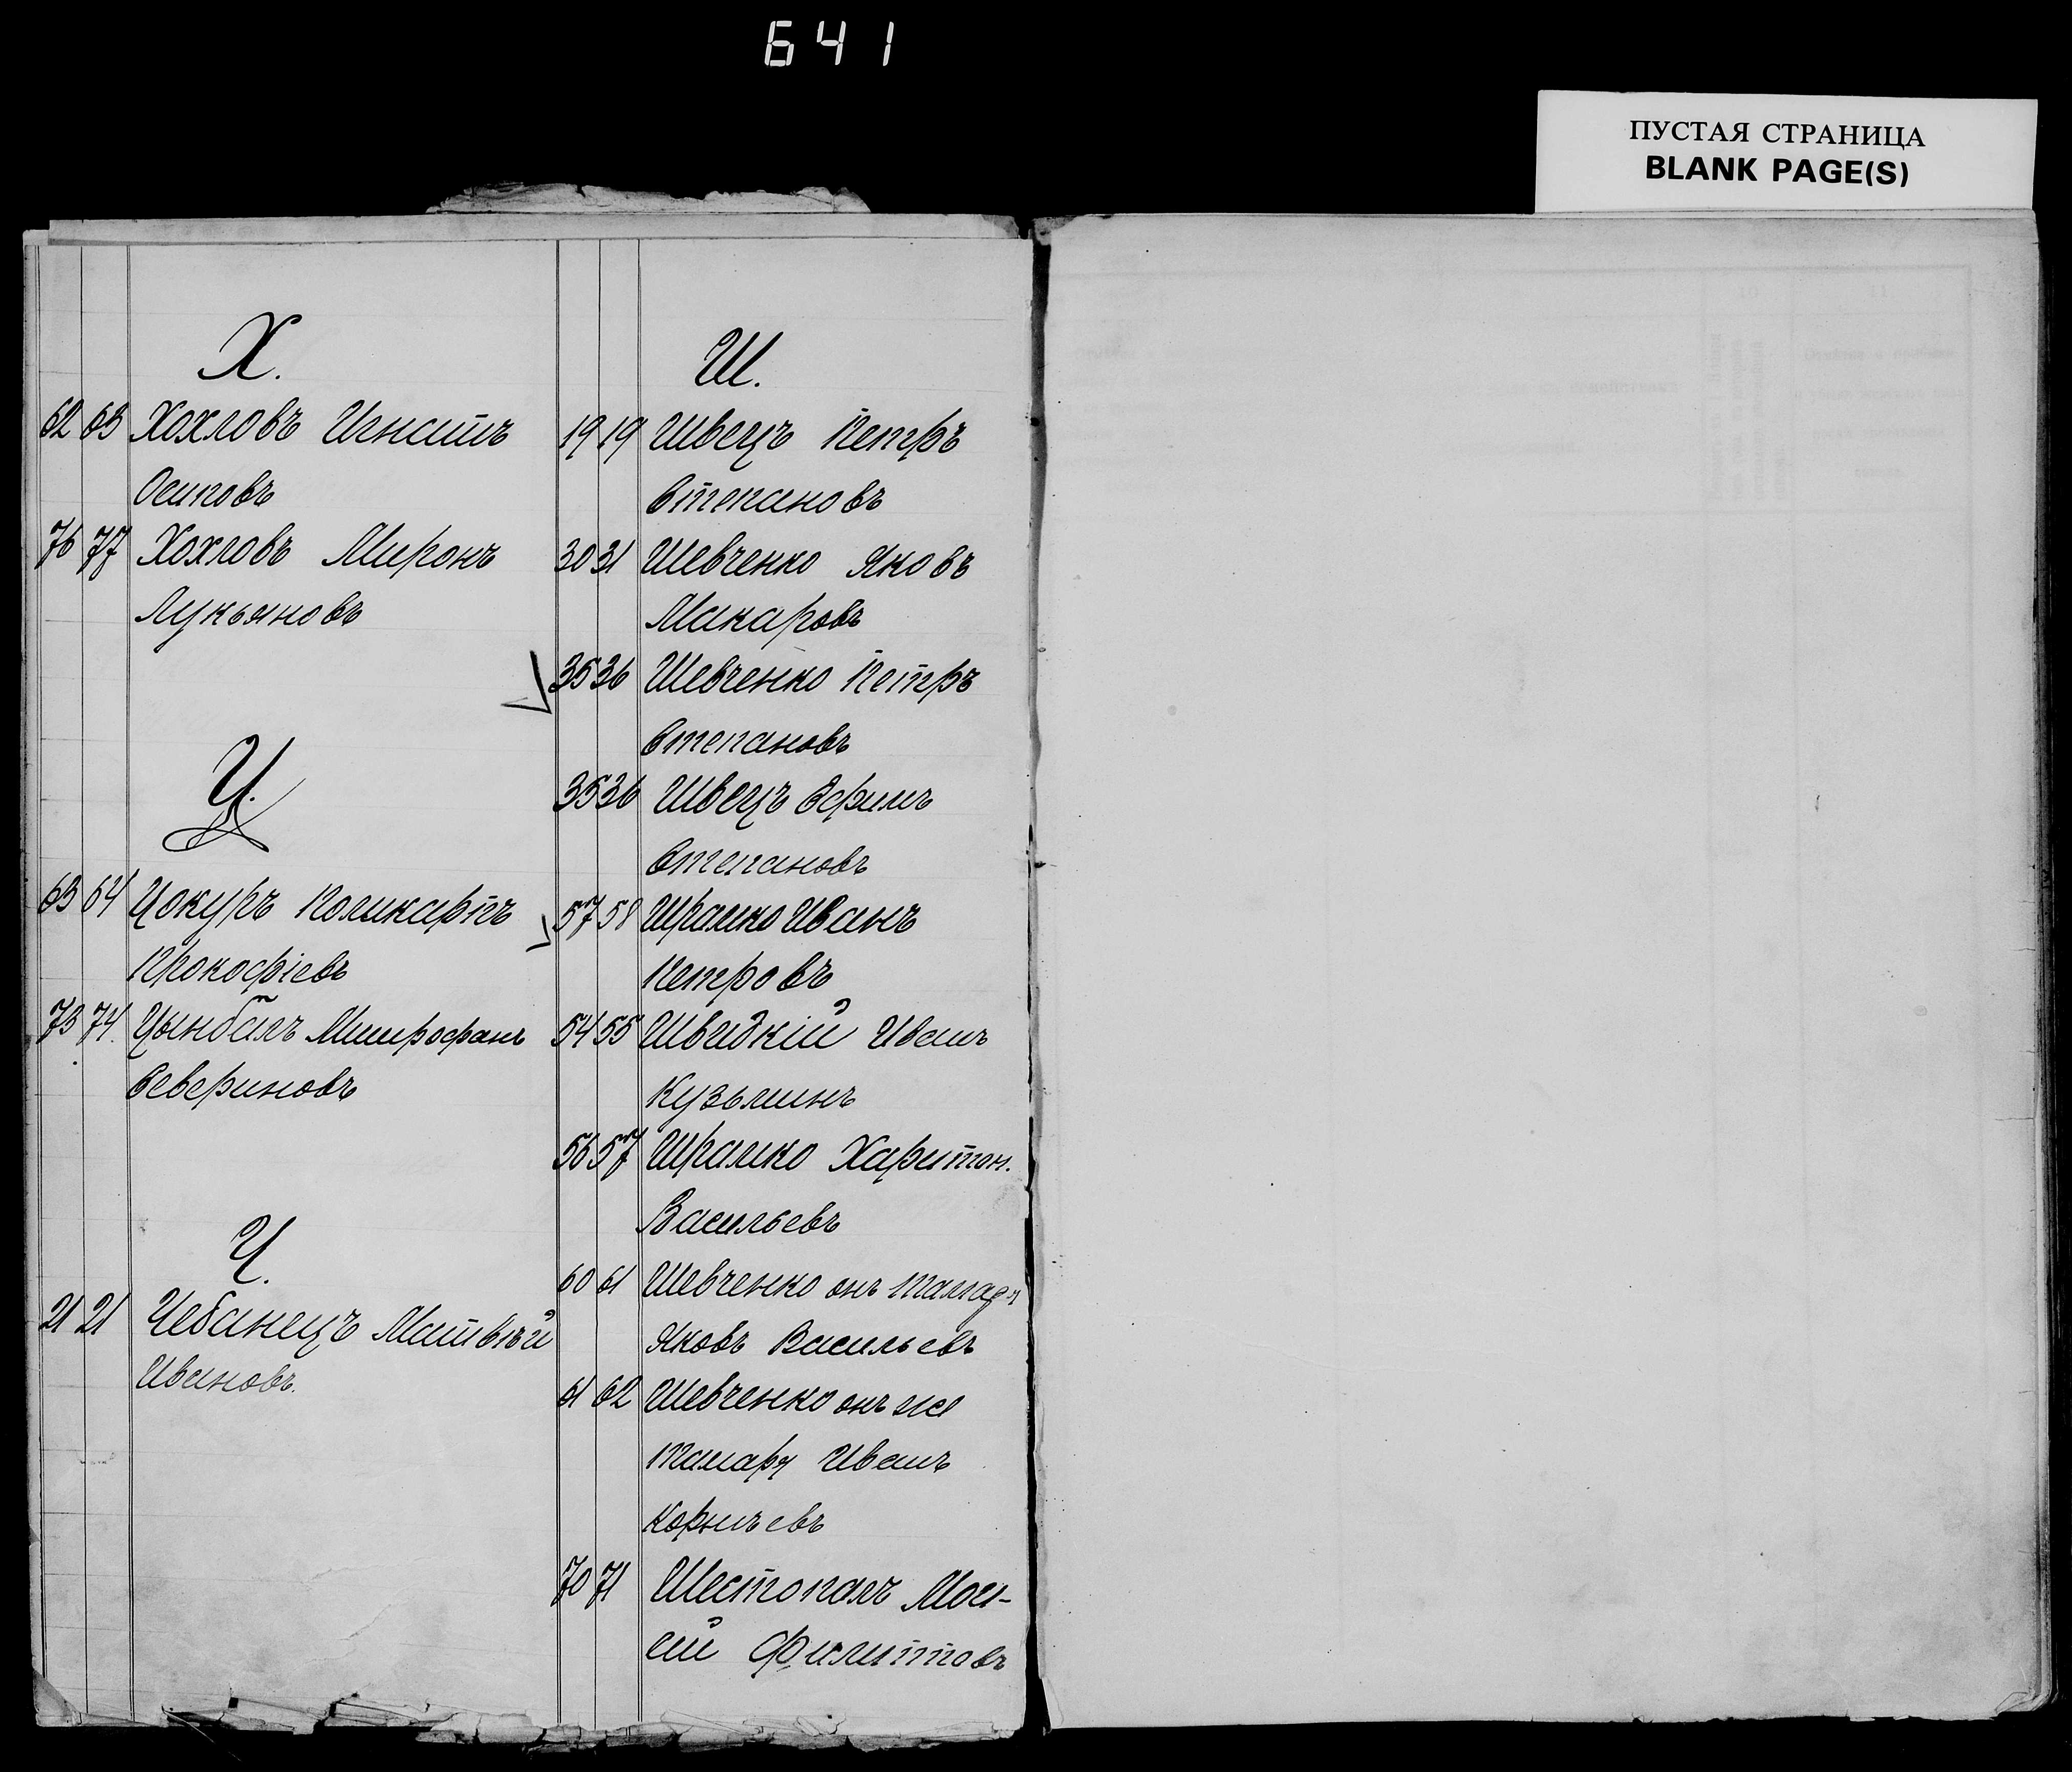 641
ПУСТАЯ СТРАНИЦА
BLANK PAGE(S)
Х.
62 63 Хохловъ Игнатъ
Осиповъ
76 77 Хохловъ Миронъ
Лукьяновъ
Ц.
63 64 Цокуръ Поликарпъ
Прокофіевъ
73 74. Цынбалъ Митрофанъ
Севериновъ
Ч.
21 21 Чебанецъ Матвѣй
Ивановъ.
Ш.
19 19 Швецъ Петръ
Степановъ
30 31 Шевченко Яковъ
Макаровъ
35 36 Шевченко Петръ
Степановъ
35 36 Швецъ Ефимъ
Степановъ
57 58 Шрамко Иванъ
Петровъ
54 55 Швидкій Иванъ
Кузьминъ
56 57 Шрамко Харитон.
Васильевъ
60 61 Шевченко онъ
Яковъ Васильевъ
61 62 Шевченко онъ же
Иванъ
Корнѣевъ
70 71 Шестопалъ Мои-
сей Филипповъ